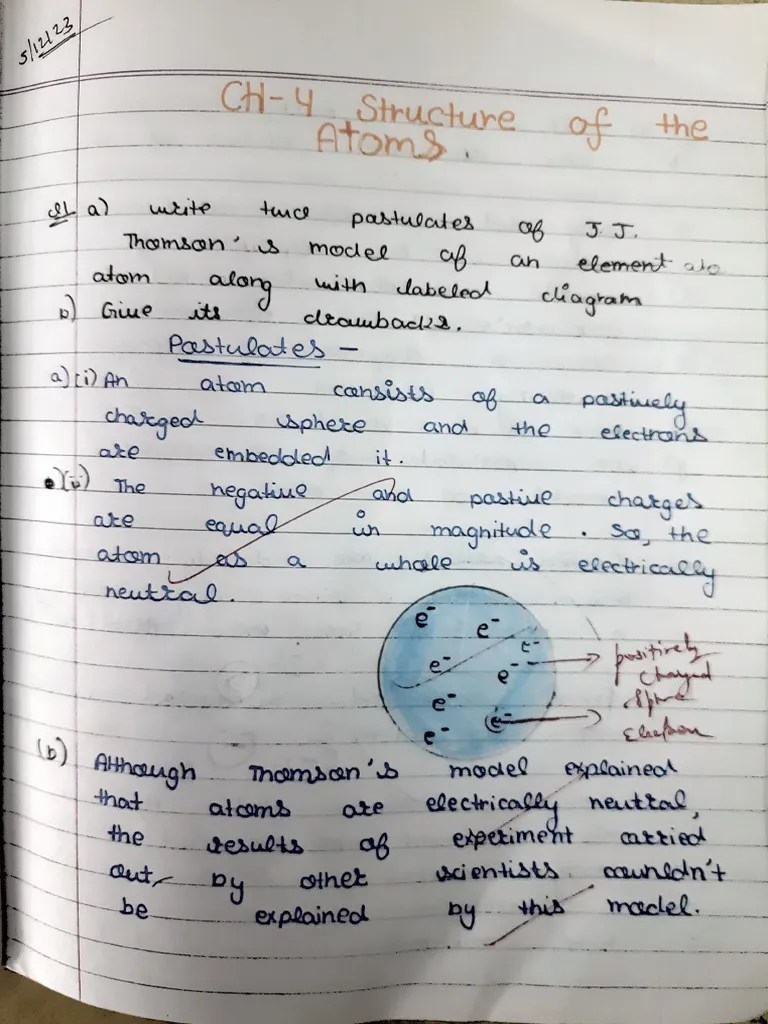 5/12/23
CH-4 Structure of the
Atoms.
Q1 a) write two postulates of J.J.
Thomson's model of an element ato
atom along with labeled diagram
b) Give its drawbacks.
Postulates –
a)(i) An atom consists of a postively
charged sphere and the electrons
are embedded it.
(ii) The negative and postive charges
are equal in magnitude. So, the
atom as a whole is electrically
neutral.
e⁻ e⁻ e⁻ e⁻ e⁻ e⁻ e⁻ e⁻
positively
charged
Electron
(b) Although Thomson's model explained
that atoms are electrically neutral,
the results of experiment carried
out, by other scientists counldn't
be explained by this model.